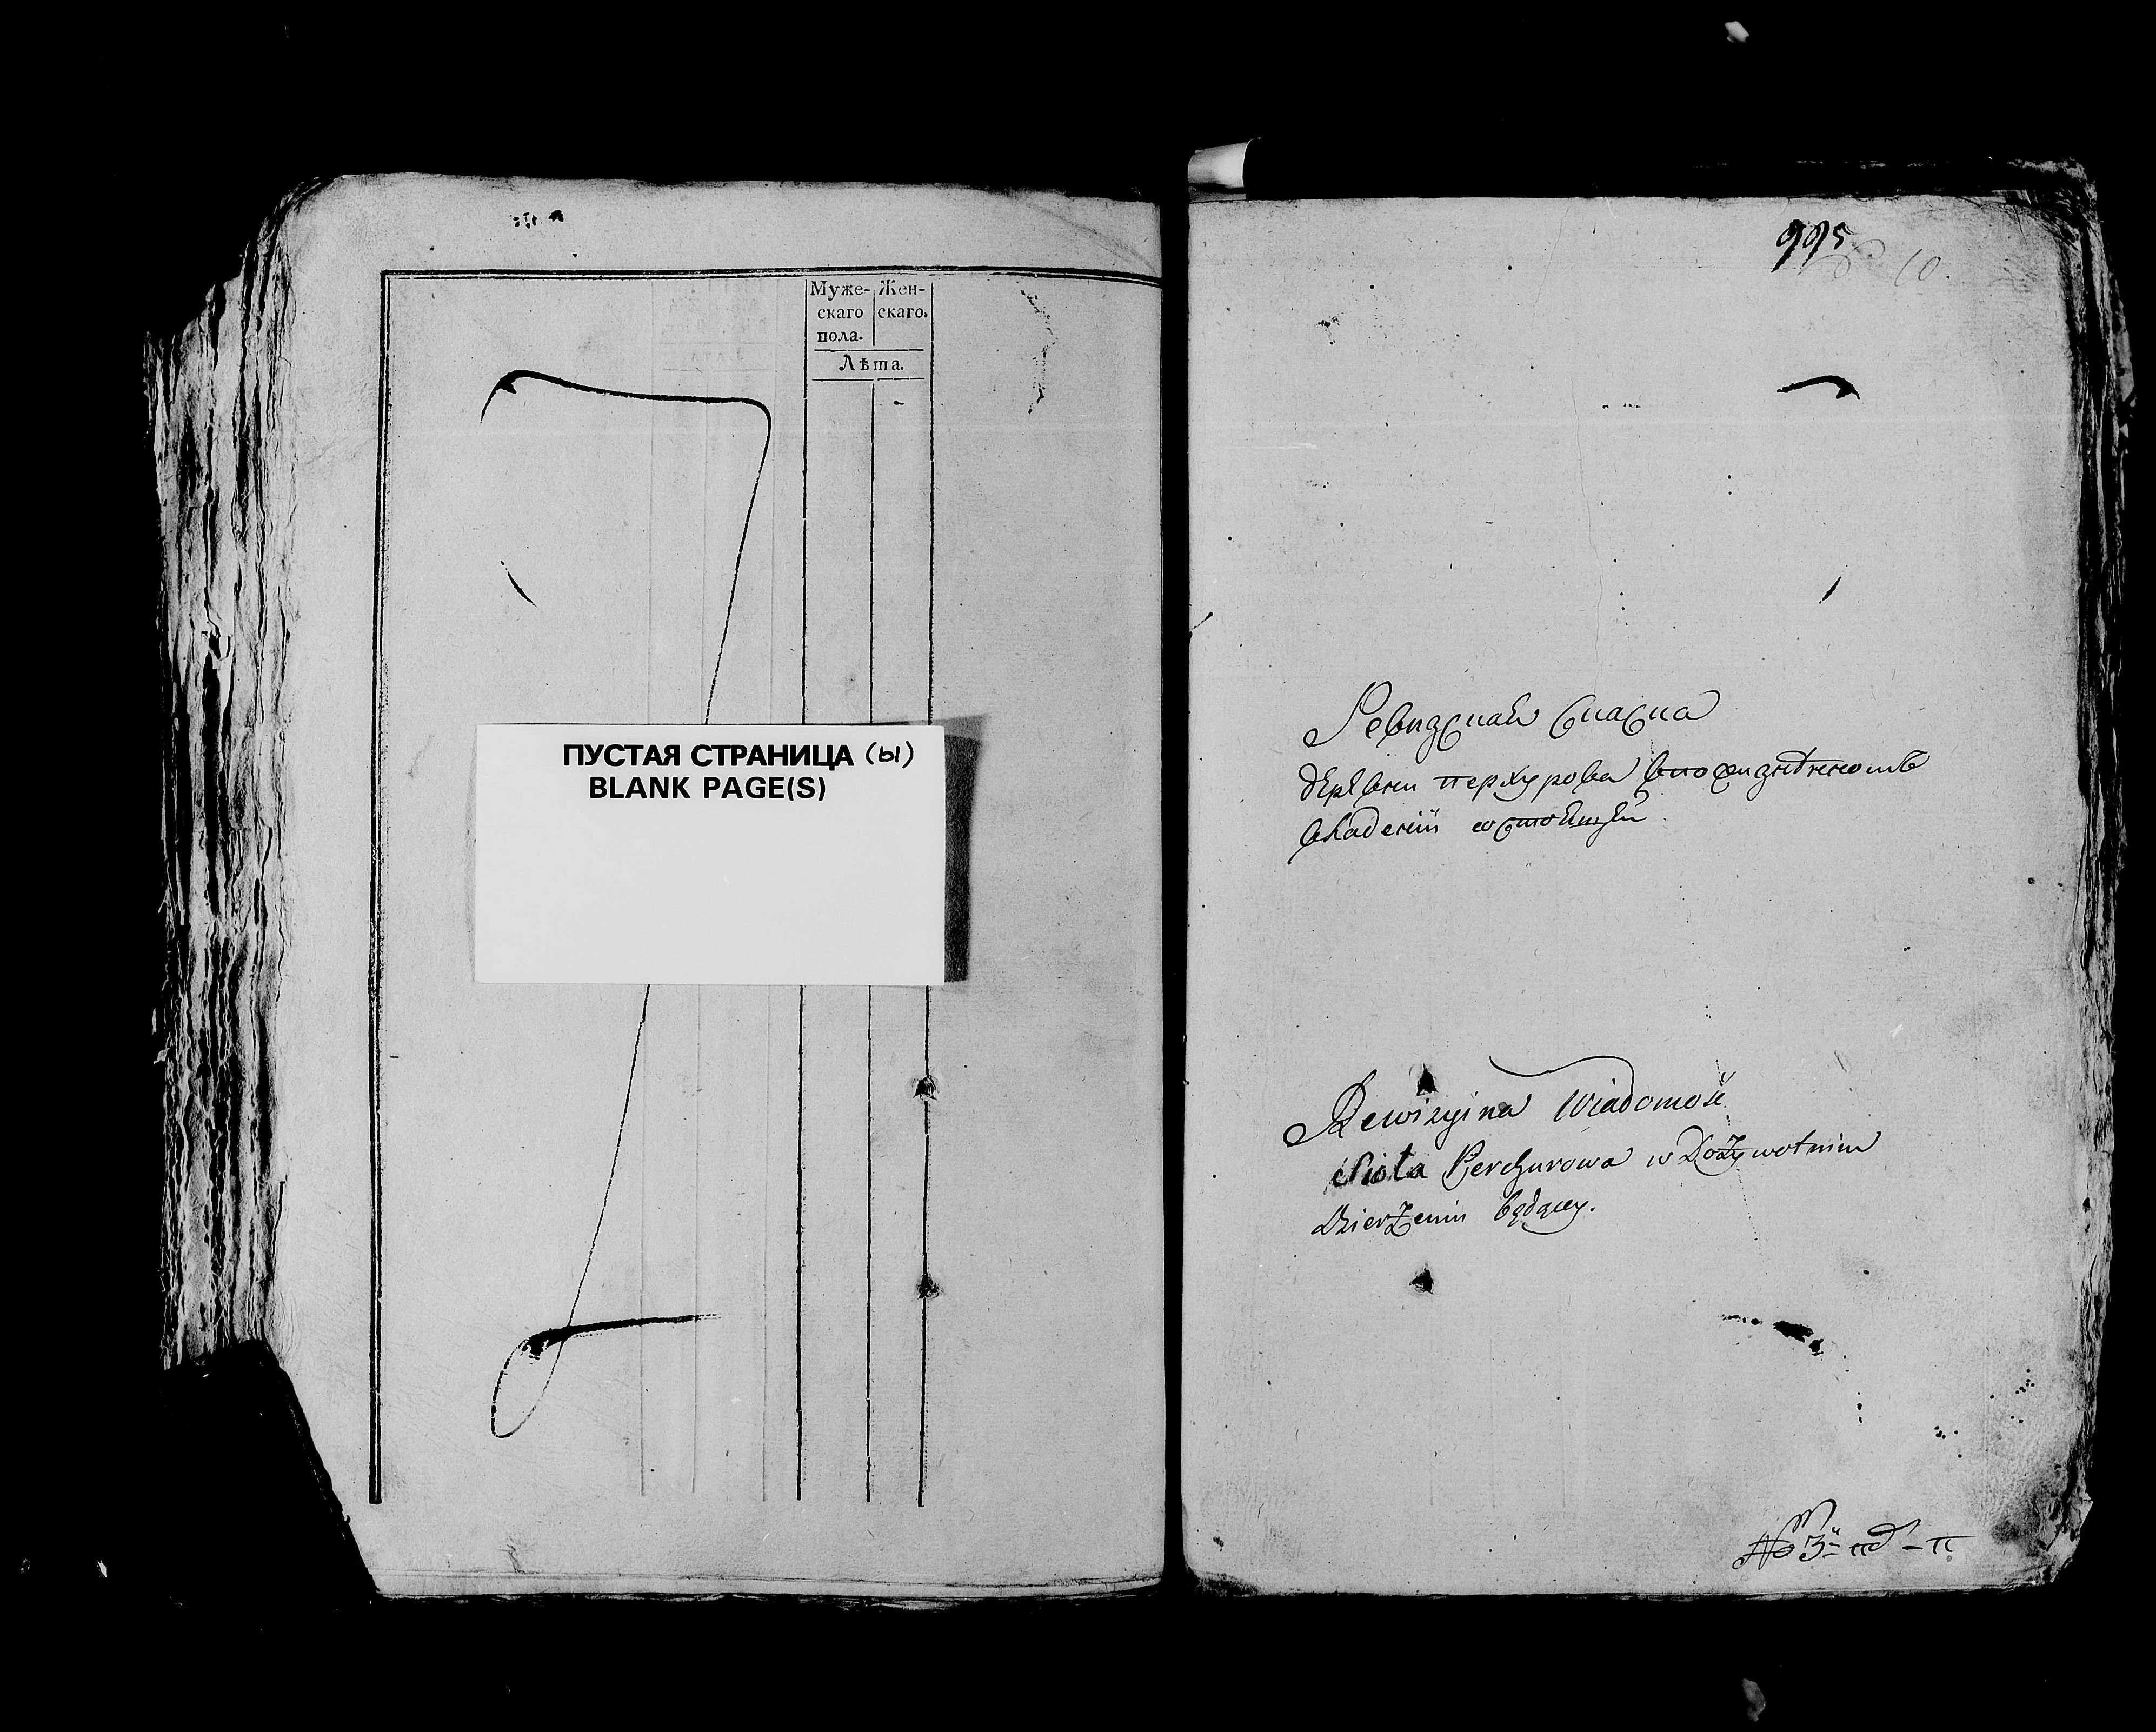 Муже- Жен-
скаго скаго.
пола.
Лѣта.
ПУСТАЯ СТРАНИЦА (ы)
BLANK PAGE(S)
995
10.
Ревизская Сказка
деревни перхурова
владении состоящей
Rewizyina Wiadomość
Sioła Perchurowa w Dożywotnim
Dzierżeniu będącey.
№ 3